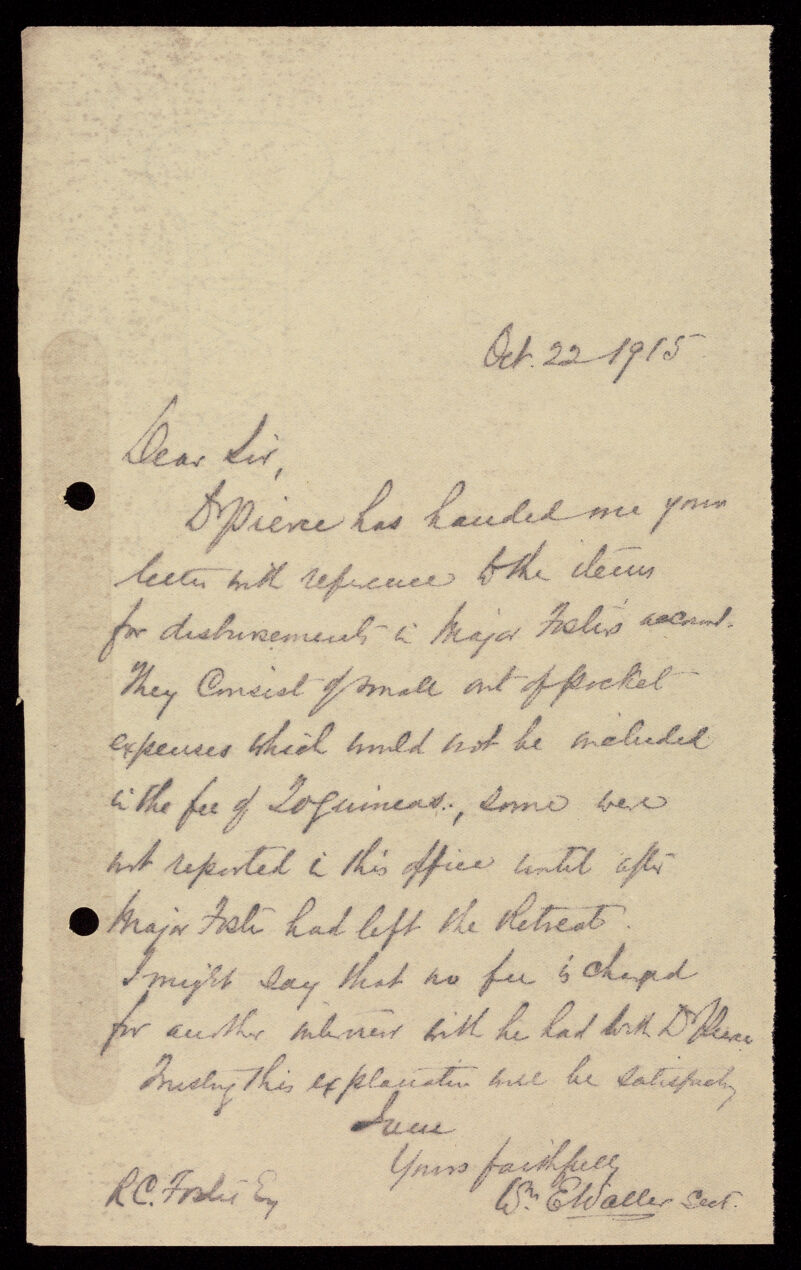 Oct. 22 1915
Dear Sir,
Dr Pierce has handed me your
letter with reference to the items
for disbursements in Major Foster's account.
They Consist of small out of pocket
expenses which would not be included
in the fee of guineas., some were
not reported in this office until after
Major Foster had left the Retreat.
I might say that no fee is charged
for another interview with he had with Dr Pierce
Trusting this explanation will be satisfactory
Yours faithfully
R.C. Foster Esq
Wm E Waller Sect.